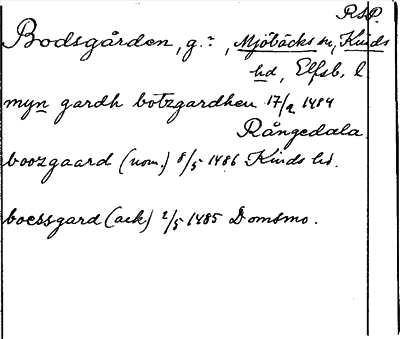 RSP.
Bodsgården, g.?, Mjöbäcks sn, Kinds
hd, Elfsb. l.
myn gardh bótzgardhen 17/2 1484
Rångedala.
boozgaard (nom.) 8/5 1486 Kinds hd.
boessgard (ack) 2/5 1485 Domsmo.